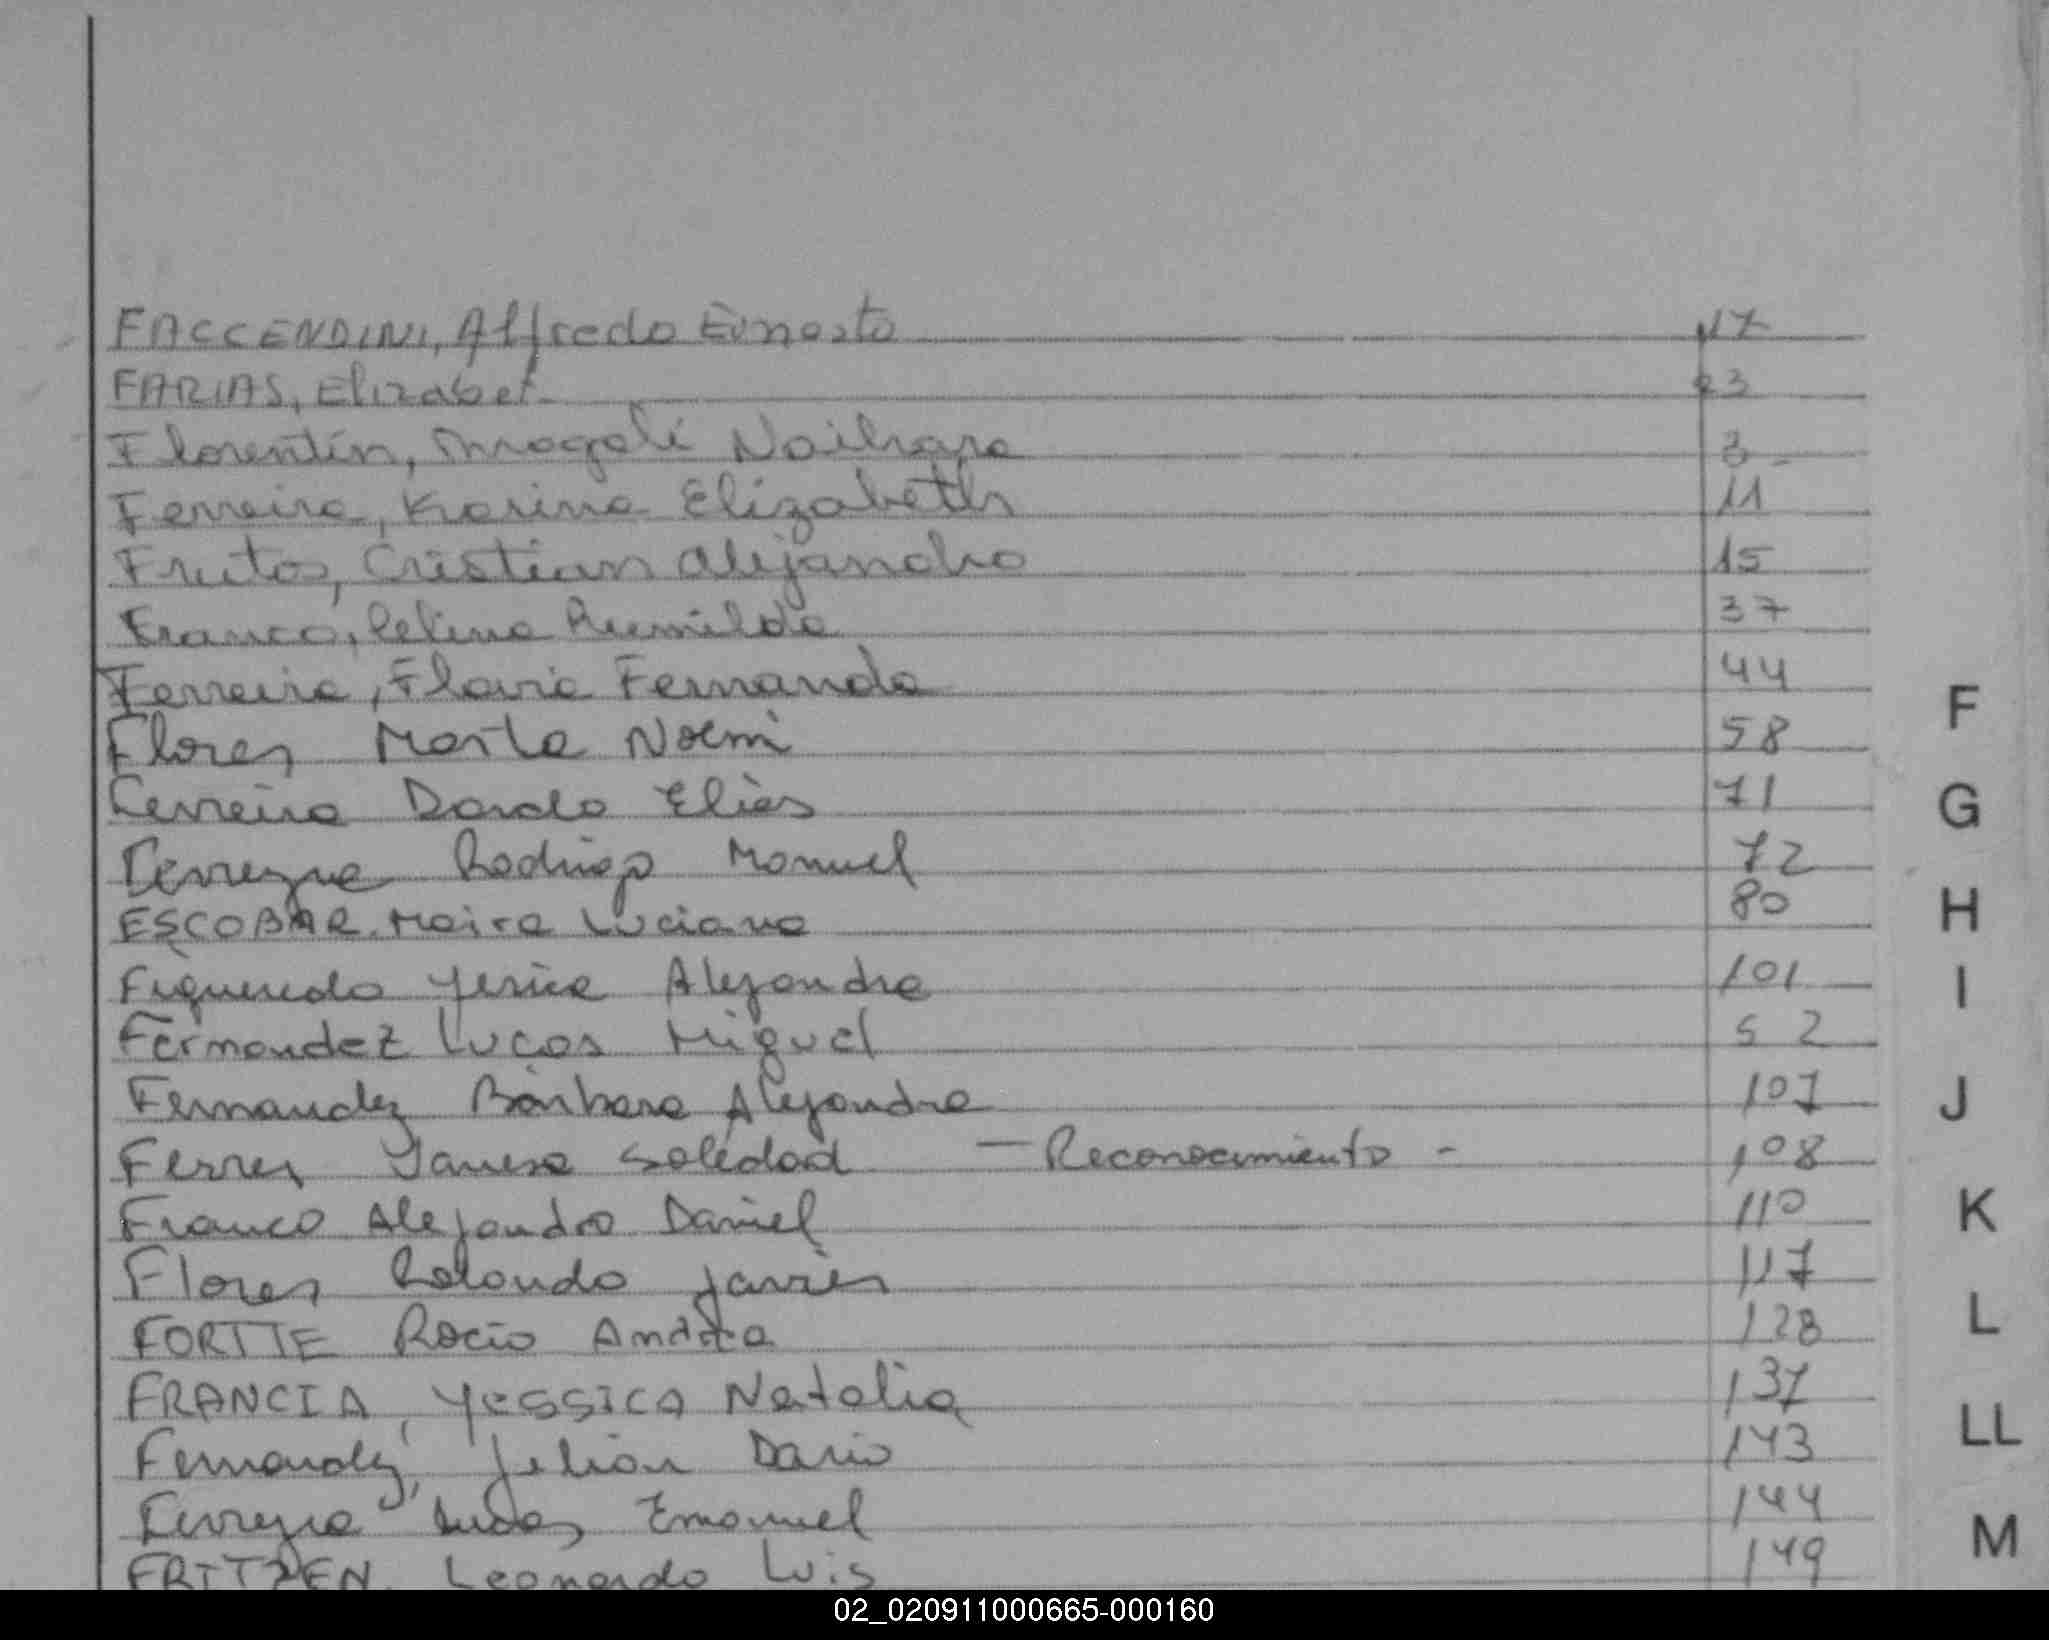 FACCENDINI, Alfredo Ernesto 17
FARIAS, Elizabet 23
Florentín, Magalí Naihara 3
Ferreira, Karina Elizabeth 11
Frutos, Cristian Alejandro 15
Franco, Celina Rumilda 37
Ferreira, Flavia Fernanda 44
Flores Marta Noemi 58
Ferreira Dardo Elias 71
Ferreyra Rodrigo Manuel 72
ESCOBAR Maira Luciana 80
Figueredo Yesica Alejandra 101
Fernandez Lucas Miguel 52
Fernandez Bárbara Alejandra 107
Ferrer Yanesa Soledad — Reconocimiento - 108
Franco Alejandro Daniel 110
Flores Rolando Javier 117
FORTTE Rocio Andrea 128
FRANCIA, Yessica Natalia 137
Fernandez, Julian Dario 143
Ferreyra Lucas Emanuel 144
FRITZEN Leonardo Luis 149
F
G
H
I
J
K
L
LL
M
02_020911000665-000160